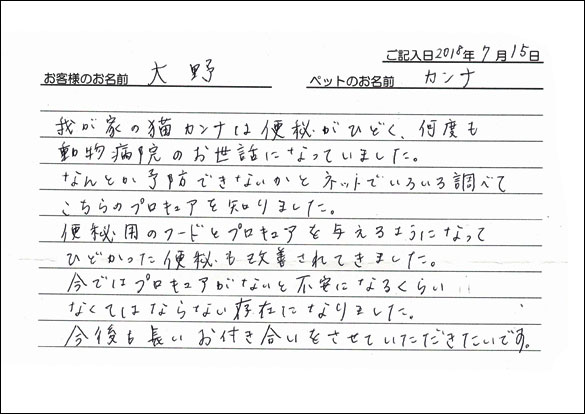 ご記入日2018年7月15日
お客様のお名前 大野 ペットのお名前 カンナ
我が家の猫カンナは便秘がひどく、何度も
動物病院のお世話になっていました。
なんとか予防できないかとネットでいろいろ調べて
こちらのプロキュアを知りました。
便秘用のフードとプロキュアを与えるようになって
ひどかった便秘も改善されてきました。
今ではプロキュアがないと不安になるくらい
なくてはならない存在になりました。
今後も長いお付き合いをさせていただきたいです。